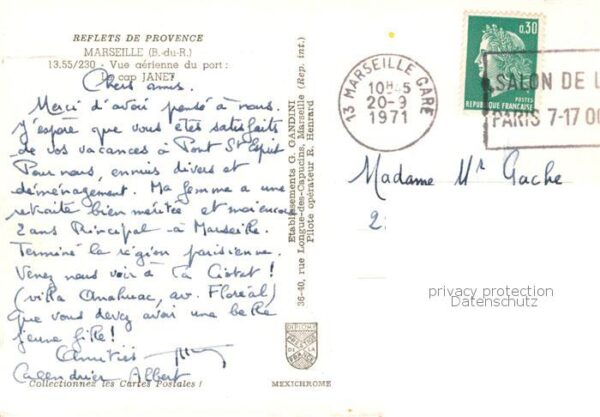 REFLETS DE PROVENCE
MARSEILLE (B.-du-R.)
13.55/230 - Vue aérienne du port :
Le cap JANET
Chers amis.
Merci d'avoir pensé à nous.
J'espère que vous êtes satisfaits
de vos vacances à Pont St Esprit
Pour nous, ennuis divers et
déménagement. Ma femme a une
retraite bien méritée et moi encore
2 ans Principal à Marseille.
Terminé la région parisienne.
Venez nous voir à La Ciotat !
(villa Anahuac, av. Floréal)
Que vous devez avoir une belle
jeune fille !
Amitiés
Calendrier Albert
Collectionnez les Cartes Postales !
Etablissements G. GANDINI
36-40, rue Longue-des-Capucins, Marseille (Rep. int.)
Pilote opérateur R. Henrard
MEXICHROME
13 MARSEILLE GARE
10H45
20-9
1971
0,30
POSTES
REPUBLIQUE FRANÇAISE
SALON DE L
PARIS 7-17 OC
Madame Mr Gache
2
privacy protection
Datenschutz